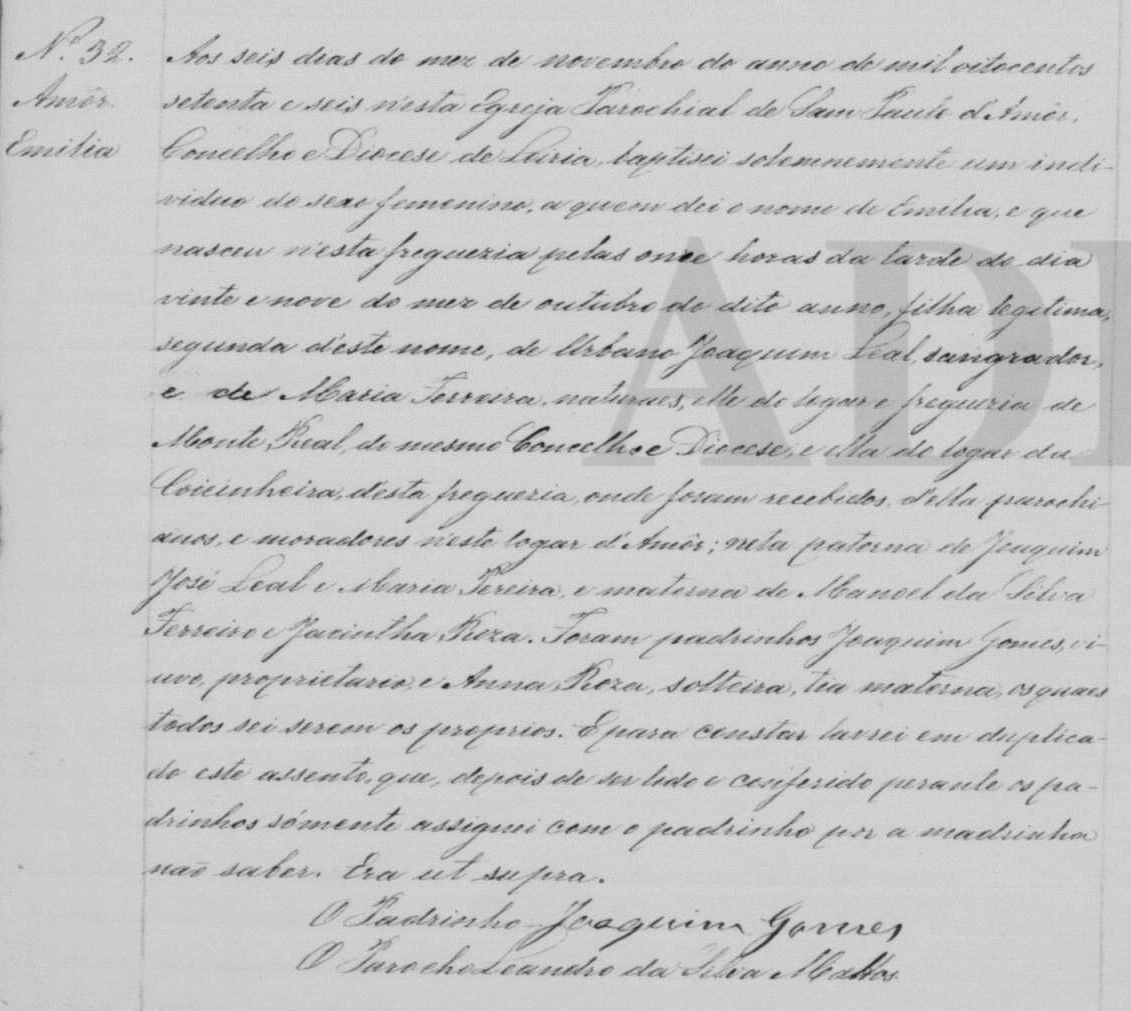 Nº 32.
Amôr.
Emilia
Aos seis dias do mez de novembro do anno de mil oitocentos
setenta e seis, n'esta Egreja Parochial de Sam Paulo d'Amôr,
Concelho e Diocese de Leiria, baptisei solemnemente um indi-
viduo do sexo femenino, a quem dei o nome de Emilia, e que
nasceu n'esta freguezia pelas onze horas da tarde do dia
vinte e nove do mez de outubro do dito anno, filha legitima,
segunda d'este nome, de Urbano Joaquim Leal, sangrador,
e de Maria Ferreira, naturaes, elle do logar e freguezia de
Monte Real, do mesmo Concelho e Diocese, e ella do logar da
Coicinheira, d'esta freguezia, onde foram recebidos, d'ella parochi-
anos, e moradores n'este logar d'Amôr; neta paterna de Joaquim
José Leal e Maria Pereira, e materna de Manoel da Silva
Ferreiro e Jacintha Roza. Foram padrinhos Joaquim Gomes, vi-
uvo, proprietario, e Anna Roza, solteira, tia materna, os quaes
todos sei serem os proprios. E para constar lavrei em duplica-
do este assento, que, depois de ser lido e conferido perante os pa-
drinhos sómente assignei com o padrinho por a madrinha
não saber. Era ut supra.
O Padrinho Joaquim Gomes
O Parocho Leandro da Silva Mattos
AD